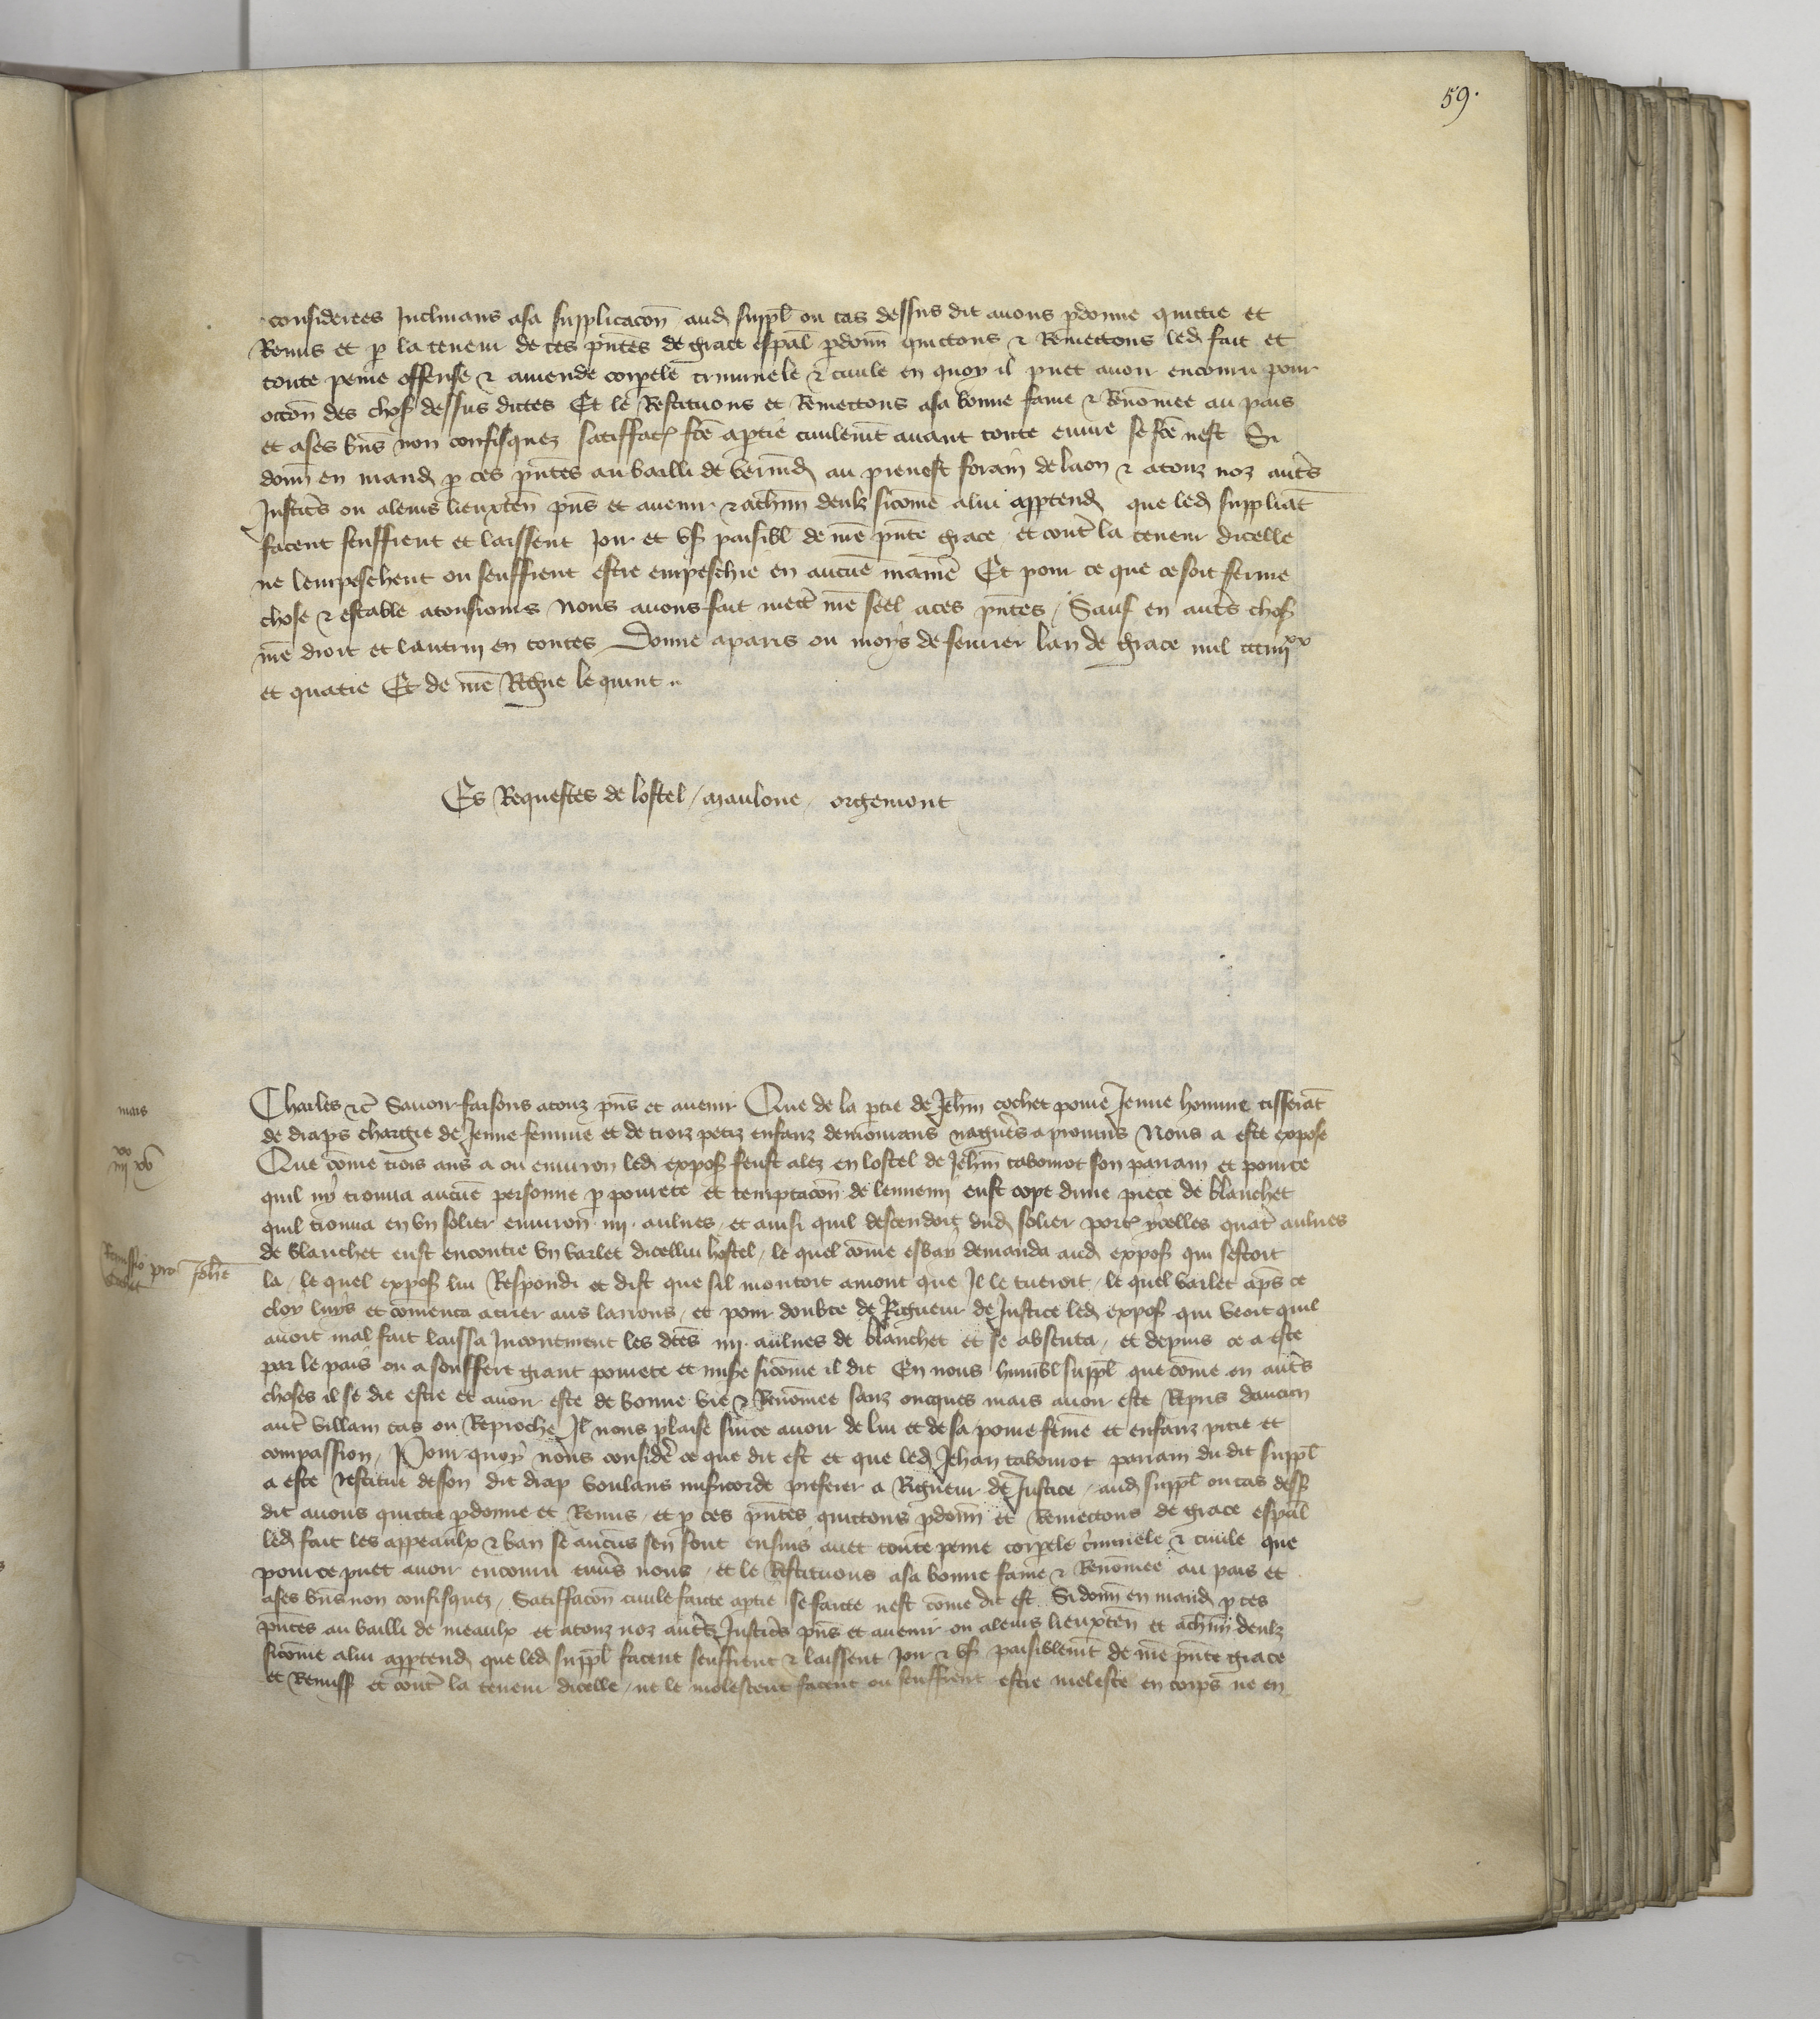 59.
considerees Inclinans asa supplicacōn aud suppl̄ ou cas dessus dit auons pdonne quictie et
Remis et p la teneur de ces pn̄tes de grace esp̄al pdonn̄ quictons & Remectons led fait et
toute peine offense & amende corpele criminele & ciuile en quoy il puet auoir encouru pour
occōn des chos dessus dictes Et le Restituons et Remectons asa bonne fame & Renōmee au pais
et ases bn̄s non confisquez satiffac̄ fc̄e aptie ciuilemt auant toute euure se fc̄e nest Si
donn̄ en mand p ces pn̄tes au bailli de verm̄d au preuost forain de laon & atouz noz aut̄s
Justic̄s ou aleurs lieuxten̄ pn̄s et auenir & ach̄un deulz sicōme alui apptend que led suppliāt
facent seuffrent et laissent Joir et vs̄ paisibl̄ de nr̄e pn̄te grace et cont̄ la teneur dicelle
ne lempeschent ou seuffrent estre empeschie en aucūe manie͂ Et pour ce que ce soit ferme
chose & estable atousiours Nous auons fait mect̄ nr̄e seel aces pn̄tes / Sauf en aut̄s chos
nr̄e droit et lautruy en toutes Donne aparis ou moys de feurier lan de grace mil ccciiijxx
et quatre Et de nr̄e Regne le quint ..
Es Requestes de lostel / maulone / orgemont
mais
Charles &c̄ Sauoir faisons atouz pn̄s et auenir Que de la ptie de Jeh̄n cochet poure Jeune homme tisserāt
de draps chargie de Jeune femme et de trois petiz enfanz demourans nagueres a prouuins Nous a este expose
Que cōme trois ans a ou enuiron led expos̄ feust alez en lostel de Jeh̄n tabourot son parrain et pource
quil ny trouua aucūe personne p pourete et temptacōn de lennemi eust cope dune piece de blanchet
quil trouua en vn solier enuiron iiij aulnes / et ainsi quil descendoit dud solier port̄ ycelles quat̄ aulnes
de blanchet eust encontre vn varlet dicellui hostel / le quel cōme esbay demanda aud expos̄ qui sestoit
Remissio pro Joh̄e
Cochet
la / le quel expos̄ lui Respondi et dist que sil montoit amont que Il le tueroit / le quel varlet ap̄s ce
cloy luys et cōmenca acrier aus larrons / et pour doubte de Rigueur de Justice led expos̄ qui veoit quil
auoit mal fait laissa Incontinent les dc̄es iiij aulnes de blanchet et se absenta / et depuis ce a este
par le pais ou a souffert grant pourete et mis̄e sicōme il dit En nous humbl̄ suppl̄ que cōme en aut̄s
choses il se die estre et auoir este de bonne vie & Renōmee sanz oncques mais auoir este Repris daucun
aut̄ villain cas ou Reproche Il nous plaise sur ce auoir de lui et de sa poure fem̄e et enfanz pitie et
compassion / Pour quoy nous consider̄ ce que dit est et que led Jehan tabourot parrain du dit suppl̄
a este Restitue de son dit drap voulans mis̄icorde preferer a Rigueur de Justice / aud suppl̄ ou cas dess̄
dit auons quictie pdonne et Remis / et p ces pn̄tes quictons pdonn̄ et Remectons de grace esp̄al
led fait les appeaulx & ban se aucuns sen sont ensuis auec toute peine corpele c̄minele & ciuile que
pource puet auoir encouru enu̾s nous / et le Restituons asa bonne fame & Renōmee au pais et
ases bn̄s non confisquez / Satiffacōn ciuile faicte aptie se faicte nest cōme dit est Si donn̄ en mand p ces
pn̄tes au bailli de meaulx et atouz noz aut̄s Justic̄s pn̄s et auenir ou aleurs lieuxten̄ et ach̄un deulz
sicōme alui apptend que led suppl̄ facent seuffrent & laissent Joir & vs̄ paisiblemt de nr̄e pn̄te grace
et Remiss̄ et cont̄ la teneur dicelle / ne le molestent facent ou seuffrent estre moleste en corps ne en